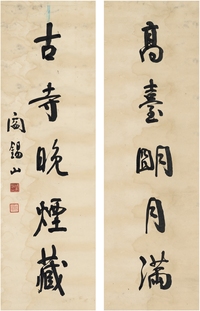 高臺明月满
古寺晚煙藏
阎錫山